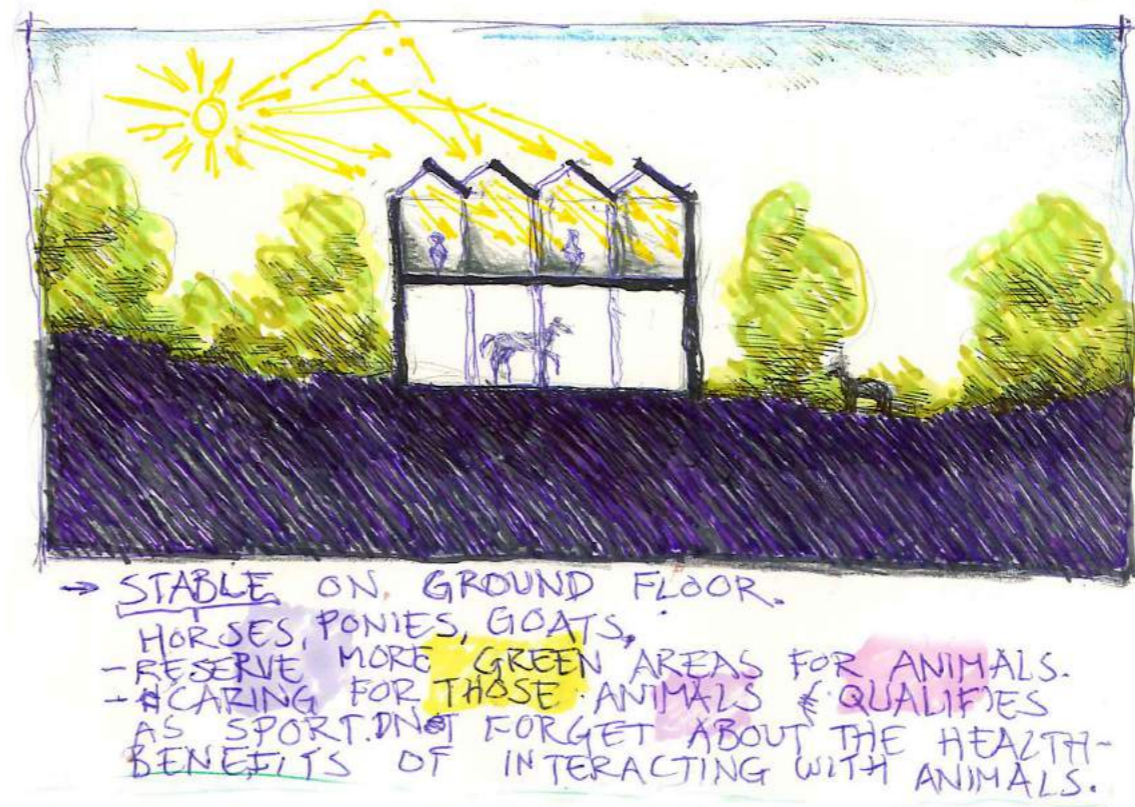 → STABLE ON GROUND FLOOR.
HORSES, PONIES, GOATS,
- RESERVE MORE GREEN AREAS FOR ANIMALS.
- CARING FOR THOSE ANIMALS & QUALIFIES
AS SPORT. DNOT FORGET ABOUT THE HEALTH-
BENEFITS OF INTERACTING WITH ANIMALS.